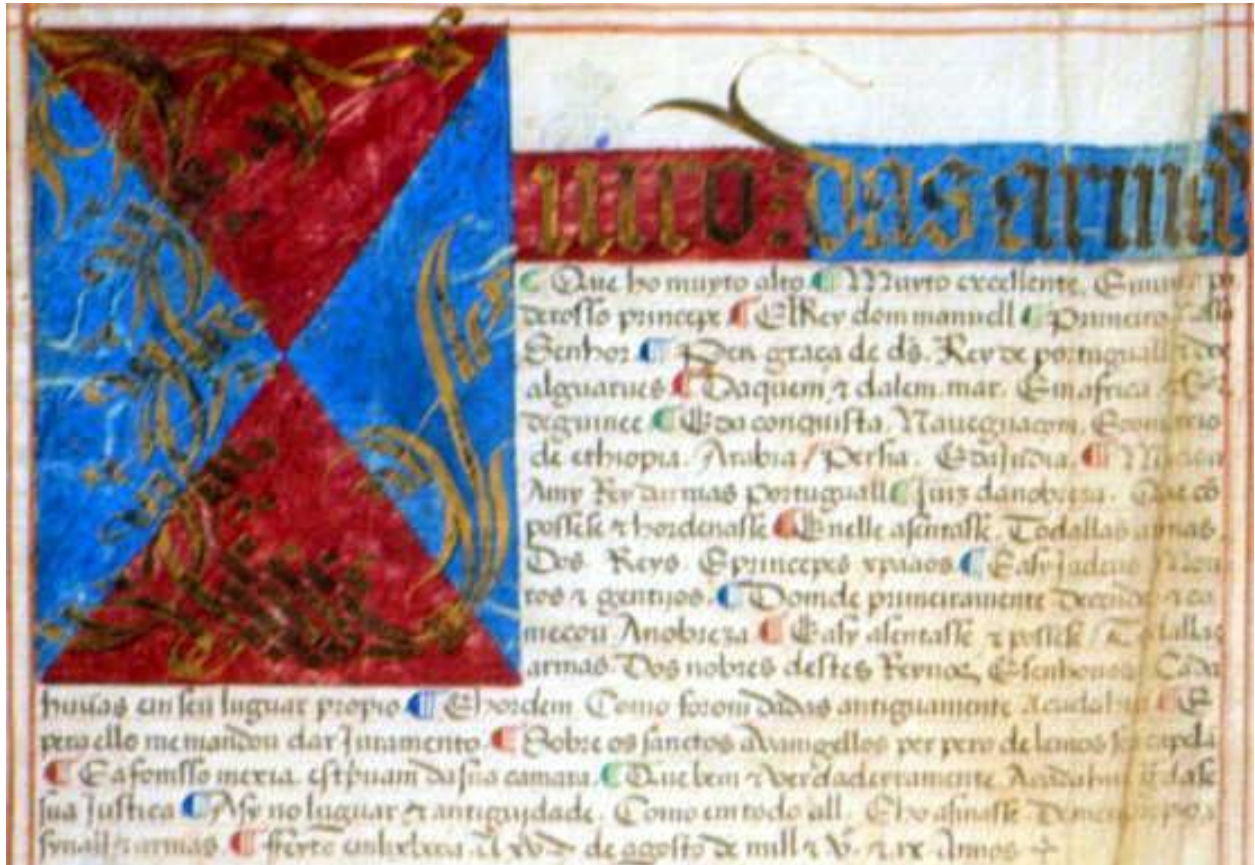 Liuro: das armas
¶ Que ho muyto alto ¶ Muyto excellente. E muyto po
derosso princepe ¶ ElRey dom manuell ¶ Primeiro
Senhor ¶ Per graça de ds. Rey de portuguall ⁊ dos
alguarues ¶ Daquem ⁊ dalem. mar. Em africa
de guinee ¶ E da conquista. Naueguaçom. E comercio
de ethiopia. Arabia / Persia. E da Jndia. ¶ Mandou
Amy Rey darmas Portuguall ¶ Juiz da nobreza. Que cõ
posesse ⁊ hordenasse ¶ E nelle asentasse. Todallas armas.
Dos Reys. E princepes xpaãos ¶ E asy Judeus Mou
ros ⁊ gentijos. ¶ Domde primeiramente ⁊ co
mecou A nobreza ¶ E asy asentasse ⁊ posesse / Todallas
armas. Dos nobres destes Reynos E senhorios Cada
huũas em seu luguar propio ¶ E hordem. Como forom dadas antiguamente ¶ E
pera ello me mandou dar Juramento. ¶ Sobre os sanctos auangellos per pero de lemos
¶ E afomsso mexia. espriuam da sua camara. ¶ Que bem ⁊ verdadeyramente. dase
sua Justica ¶ Asy no luguar ⁊ antiguydade. Como em todo all. E ho asinasse.
synall ⁊ armas. ¶ ffeyto de agosto de mill ⁊ Vᶜ. ⁊ ix Annos